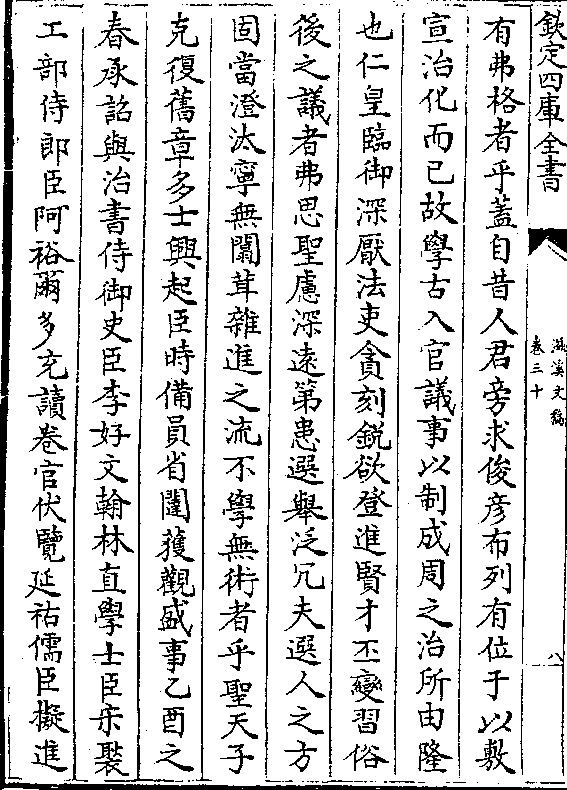 欽定四庫全書
滋溪文稿
卷三十
八
有弗格者乎蓋自昔人君旁求俊彦布列有位于以敷
宣治化而已故學古入官議事以制成周之治所由隆
也仁皇臨御深厭法吏貪刻鋭欲登進賢才丕變習俗
後之議者弗思聖慮深遠第患選舉泛冗夫選人之方
固當澄汰寧無闒茸雜進之流不學無術者乎聖天子
克復舊章多士興起臣時備員省闥獲觀盛事乙酉之
春承詔與治書侍御史臣李好文翰林直學士臣宋褧
工部侍郎臣阿裕爾多充讀卷官伏覽延祐儒臣擬進